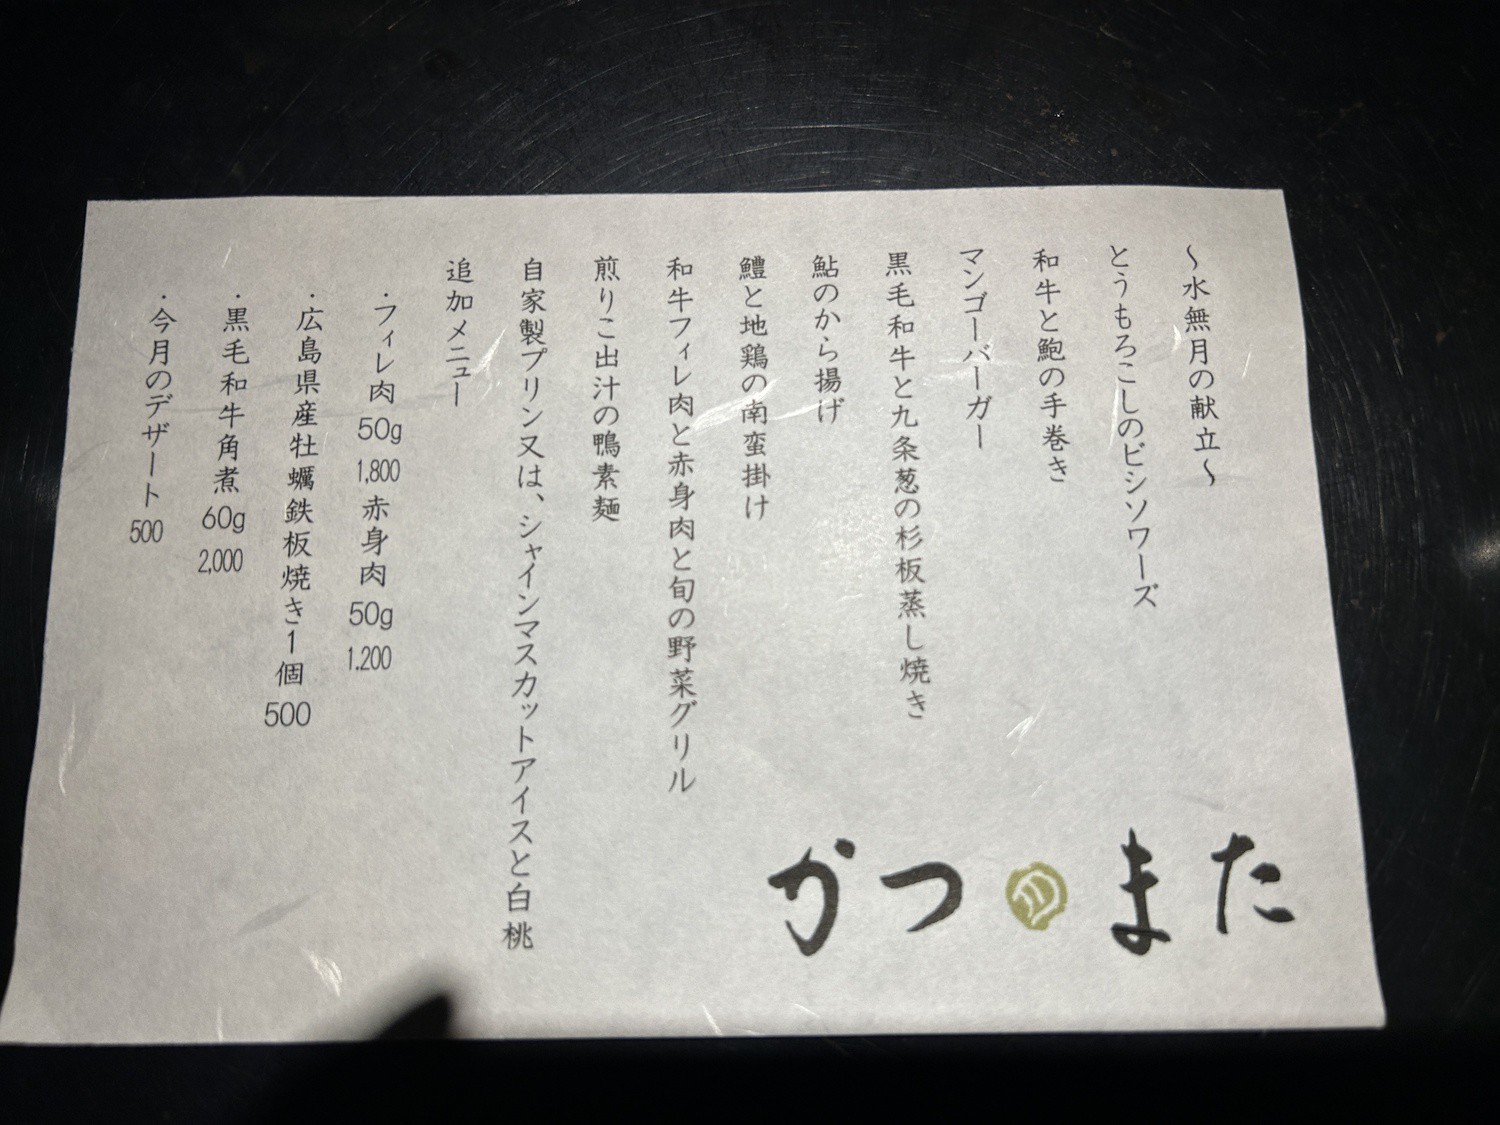 ～水無月の献立～
とうもろこしのビシソワーズ
和牛と鮑の手巻き
マンゴーバーガー
黒毛和牛と九条葱の杉板蒸し焼き
鮎のから揚げ
鱧と地鶏の南蛮掛け
和牛フィレ肉と赤身肉と旬の野菜グリル
煎りこ出汁の鴨素麺
自家製プリン又は、シャインマスカットアイスと白桃
追加メニュー
・フィレ肉 50g 1,800 赤身肉 50g 1.200
・広島県産牡蠣鉄板焼き1個 500
・黒毛和牛角煮 60g 2,000
・今月のデザート 500
かつまた